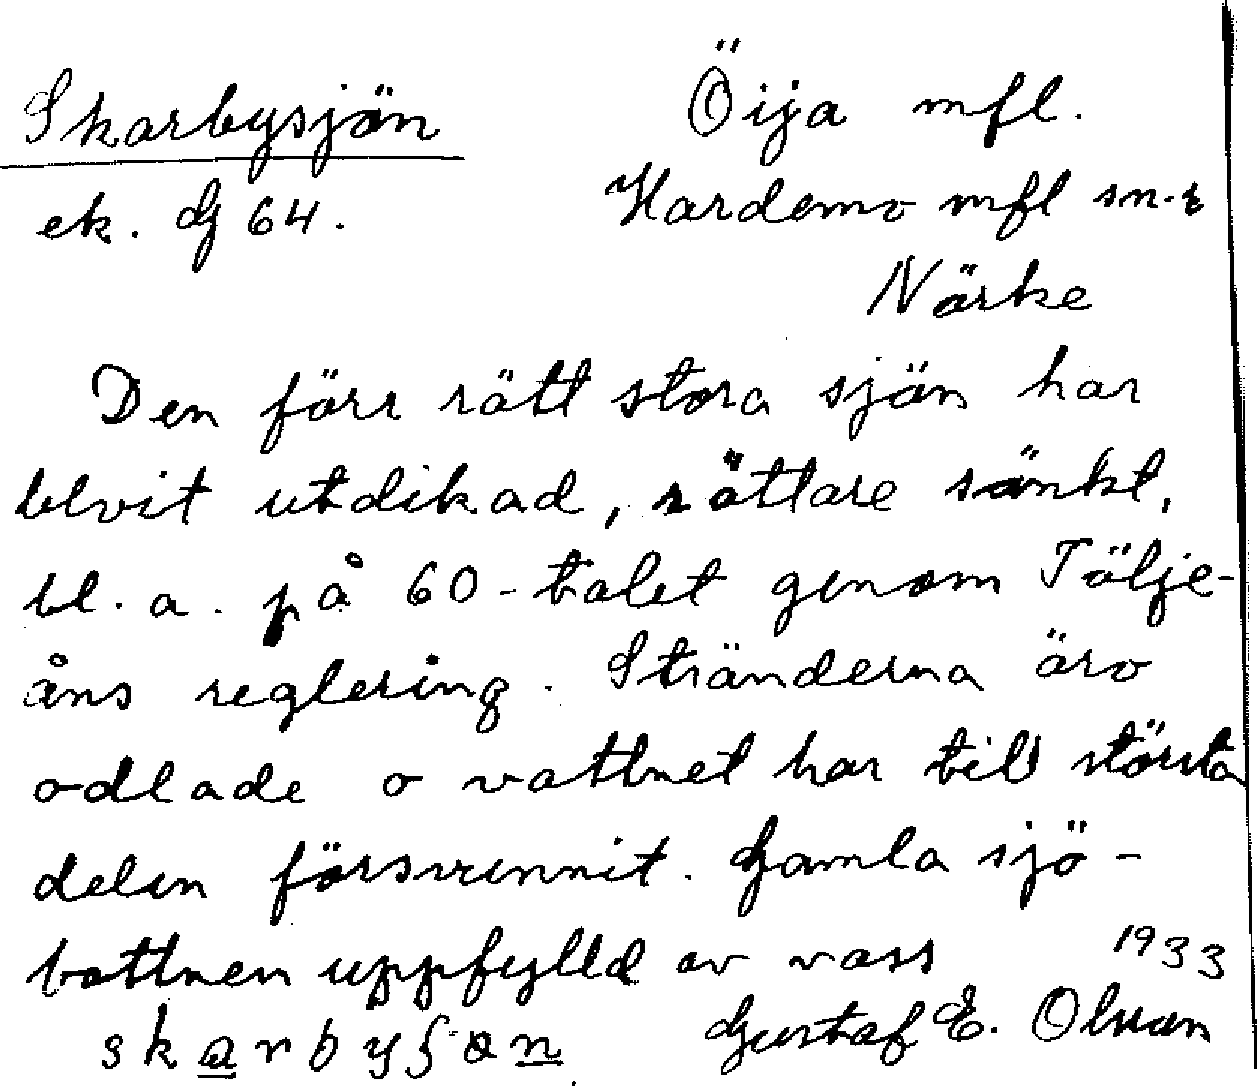 Skarbysjön
Öija mfl.
ek. G 64.
Hardemo mfl sn-r
Närke
Den förr rätt stora sjön har
blvit utdikad, rättare sänkt,
bl. a. på 60-talet genom Tälje-
åns reglering. Stränderna äro
odlade o vattnet har till största
delen försvunnit. Gamla sjö-
bottnen uppfylld av vass
1933
Gustaf E. Olsson